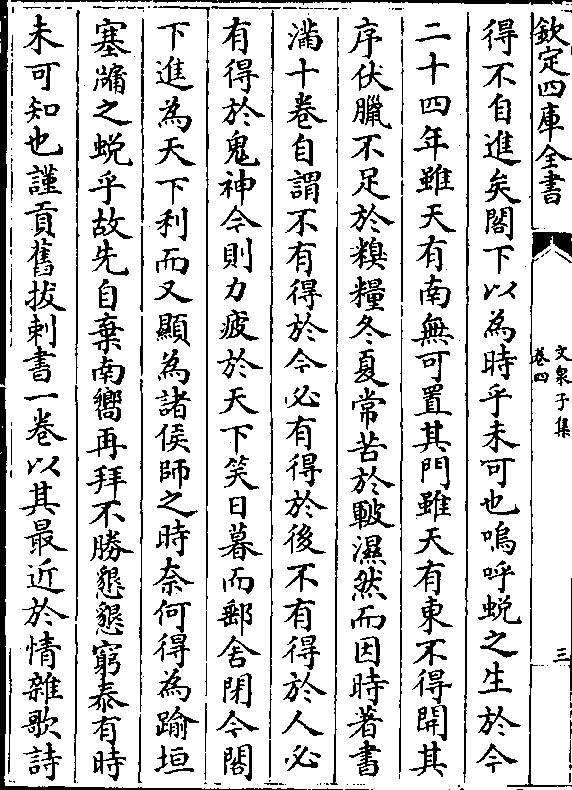 欽定四庫全書
文泉子集
卷四
三
得不自進矣閣下以為時乎未可也嗚呼蛻之生於今
二十四年雖天有南無可置其門雖天有東不得開其
序伏臘不足於糗糧冬夏常苦於皸濕然而因時著書
滿十卷自謂不有得於今必有得於後不有得於人必
有得於鬼神今則力疲於天下笑日暮而郵舍閉今閣
下進為天下利而又顯為諸侯師之時奈何得為踰垣
塞牖之蛻乎故先自棄南嚮再拜不勝懇懇窮泰有時
未可知也謹貢舊拔刺書一卷以其最近於情雜歌詩